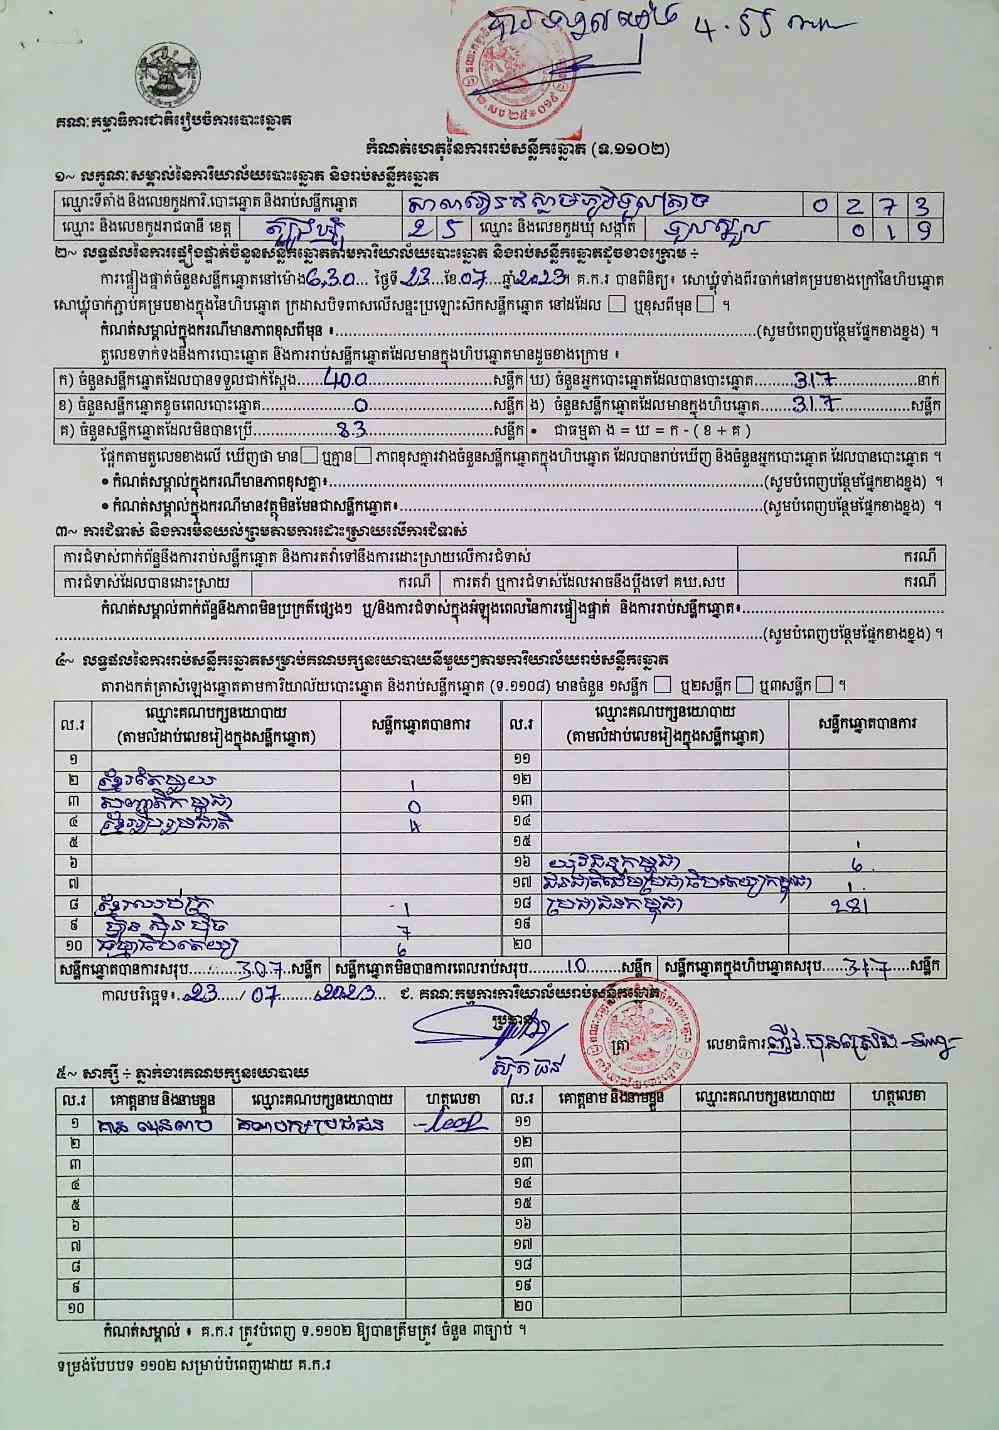 4.55
គណៈកម្មាធិការជាតិរៀបចំការបោះឆ្នោត
កំណត់ហេតុនៃការរាប់សន្លឹកឆ្នោត (ទ.១១០២)
១~ លក្ខណៈសម្គាល់នៃការិយាល័យបោះឆ្នោត និងរាប់សន្លឹកឆ្នោត
ឈ្មោះទីតាំង និងលេខកូដការិ.បោះឆ្នោត និងរាប់សន្លឹកឆ្នោត 0 2 7 3
ឈ្មោះ និងលេខកូដរាជធានី ខេត្ត ត្បូងឃ្មុំ 2 5 ឈ្មោះ និងលេខកូដឃុំ សង្កាត់ 0 1 9
២~ លទ្ធផលនៃការផ្ទៀងផ្ទាត់ចំនួនសន្លឹកឆ្នោតតាមការិយាល័យបោះឆ្នោត និងរាប់សន្លឹកឆ្នោតដូចខាងក្រោម ÷
ការផ្ទៀងផ្ទាត់ចំនួនសន្លឹកឆ្នោតនៅម៉ោង 6,30 ថ្ងៃទី 23 ខែ 07 ឆ្នាំ 2023 ។ គ.ក.រ បានពិនិត្យ៖ សោឃ្លុំទាំងពីរចាក់នៅគម្របខាងក្រៅនៃហិបឆ្នោត
សោឃ្លុំចាក់ភ្ជាប់គម្របខាងក្នុងនៃហិបឆ្នោត ក្រដាសបិទពាសលើសន្ទះប្រឡោះស៊កសន្លឹកឆ្នោត នៅដដែល ឬខុសពីមុន ។
កំណត់សម្គាល់ក្នុងករណីមានភាពខុសពីមុន ៖ (សូមបំពេញបន្ថែមផ្នែកខាងខ្នង) ។
តួលេខទាក់ទងនឹងការបោះឆ្នោត និងការរាប់សន្លឹកឆ្នោតដែលមានក្នុងហិបឆ្នោតមានដូចខាងក្រោម ៖
ក) ចំនួនសន្លឹកឆ្នោតដែលបានទទួលជាក់ស្តែង 400 សន្លឹក ឃ) ចំនួនអ្នកបោះឆ្នោតដែលបានបោះឆ្នោត 317 នាក់
ខ) ចំនួនសន្លឹកឆ្នោតខូចពេលបោះឆ្នោត 0 សន្លឹក ង) ចំនួនសន្លឹកឆ្នោតដែលមានក្នុងហិបឆ្នោត 317 សន្លឹក
គ) ចំនួនសន្លឹកឆ្នោតដែលមិនបានប្រើ 83 សន្លឹក • ជាធម្មតា ង = ឃ = ក - ( ខ + គ )
ផ្អែកតាមតួលេខខាងលើ ឃើញថា មាន ឬគ្មាន ភាពខុសគ្នារវាងចំនួនសន្លឹកឆ្នោតក្នុងហិបឆ្នោត ដែលបានរាប់ឃើញ និងចំនួនអ្នកបោះឆ្នោត ដែលបានបោះឆ្នោត ។
• កំណត់សម្គាល់ក្នុងករណីមានភាពខុសគ្នា៖ (សូមបំពេញបន្ថែមផ្នែកខាងខ្នង) ។
• កំណត់សម្គាល់ក្នុងករណីមានវត្ថុមិនមែនជាសន្លឹកឆ្នោត៖ (សូមបំពេញបន្ថែមផ្នែកខាងខ្នង) ។
៣~ ការជំទាស់ និងការមិនយល់ព្រមតាមការដោះស្រាយលើការជំទាស់
ការជំទាស់ពាក់ព័ន្ធនឹងការរាប់សន្លឹកឆ្នោត និងការតវ៉ាទៅនឹងការដោះស្រាយលើការជំទាស់ ករណី
ការជំទាស់ដែលបានដោះស្រាយ ករណី ការតវ៉ា ឬការជំទាស់ដែលអាចនឹងប្តឹងទៅ គឃ.សប ករណី
កំណត់សម្គាល់ពាក់ព័ន្ធនឹងភាពមិនប្រក្រតីផ្សេងៗ ឬ/និងការជំទាស់ក្នុងអំឡុងពេលនៃការផ្ទៀងផ្ទាត់ និងការរាប់សន្លឹកឆ្នោត៖
(សូមបំពេញបន្ថែមផ្នែកខាងខ្នង) ។
៤~ លទ្ធផលនៃការរាប់សន្លឹកឆ្នោតសម្រាប់គណបក្សនយោបាយនីមួយៗតាមការិយាល័យរាប់សន្លឹកឆ្នោត
តារាងកត់ត្រាសំឡេងឆ្នោតតាមការិយាល័យបោះឆ្នោត និងរាប់សន្លឹកឆ្នោត (ទ.១១០៨) មានចំនួន ១សន្លឹក ឬ២សន្លឹក ឬ៣សន្លឹក ។
ល.រ ឈ្មោះគណបក្សនយោបាយ សន្លឹកឆ្នោតបានការ ល.រ ឈ្មោះគណបក្សនយោបាយ សន្លឹកឆ្នោតបានការ
(តាមលំដាប់លេខរៀងក្នុងសន្លឹកឆ្នោត) (តាមលំដាប់លេខរៀងក្នុងសន្លឹកឆ្នោត)
១ ១១
២ ខ្មែរតែមួយ 1 ១២
៣ សញ្ជាតិកម្ពុជា 0 ១៣
៤ ខ្មែររួបរួមជាតិ 4 ១៤
៥ ១៥
៦ ១៦ យុវជនកម្ពុជា 6
៧ ១៧ ជនជាតិដើមប្រជាធិបតេយ្យកម្ពុជា 1
៨ ខ្មែរឈប់ក្រ 1 ១៨ ប្រជាជនកម្ពុជា 281
៩ ហ៊្វុនស៊ិនប៉ិច 7 ១៩
១០ ធម្មាធិបតេយ្យ 6 ២០
សន្លឹកឆ្នោតបានការសរុប 307 សន្លឹក សន្លឹកឆ្នោតមិនបានការពេលរាប់សរុប 10 សន្លឹក សន្លឹកឆ្នោតក្នុងហិបឆ្នោតសរុប 317 សន្លឹក
កាលបរិច្ឆេទ៖ 23 / 07 2023 ជ. គណៈកម្មការការិយាល័យរាប់សន្លឹកឆ្នោត
ប្រធាន
ត្រា លេខាធិការ
៥~ សាក្សី ÷ ភ្នាក់ងារគណបក្សនយោបាយ
ល.រ គោត្តនាម និងនាមខ្លួន ឈ្មោះគណបក្សនយោបាយ ហត្ថលេខា ល.រ គោត្តនាម និងនាមខ្លួន ឈ្មោះគណបក្សនយោបាយ ហត្ថលេខា
១ គណបក្សប្រជាជន ១១
២ ១២
៣ ១៣
៤ ១៤
៥ ១៥
៦ ១៦
៧ ១៧
៨ ១៨
៩ ១៩
១០ ២០
កំណត់សម្គាល់ ៖ គ.ក.រ ត្រូវបំពេញ ទ.១១០២ ឱ្យបានត្រឹមត្រូវ ចំនួន ៣ច្បាប់ ។
ទម្រង់បែបបទ ១១០២ សម្រាប់បំពេញដោយ គ.ក.រ